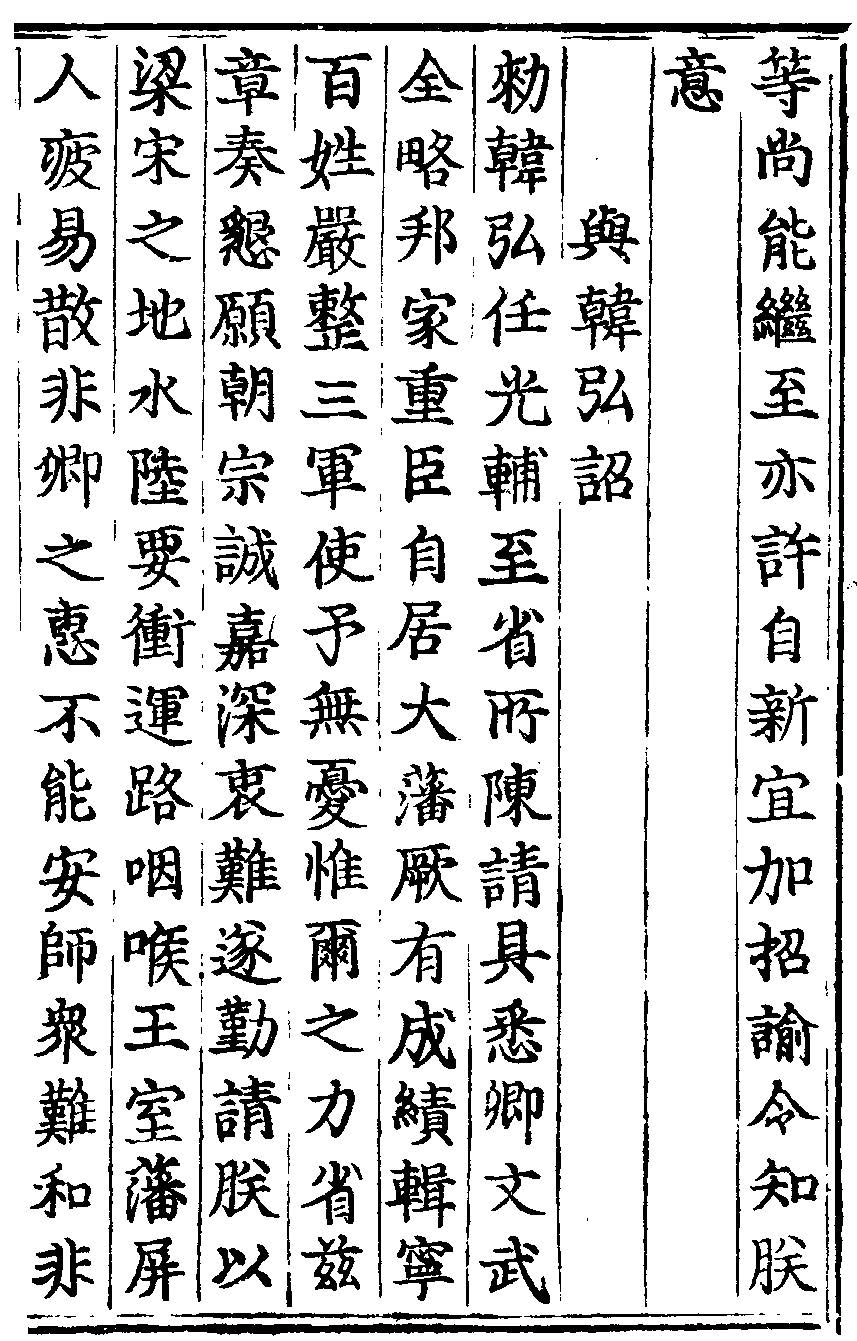 等尚能繼至亦許自新宜加招諭令知朕
意
與韓弘詔
勑韓弘任光輔至省所陳請具悉卿文武
全略邦家重臣自居大藩厥有成績輯寧
百姓嚴整三軍使予無憂惟爾之力省茲
章奏懇願朝宗誠嘉深衷難遂勤請朕以
梁宋之地水陸要衝運路咽喉王室藩屏
人疲易散非卿之惠不能安師衆難和非